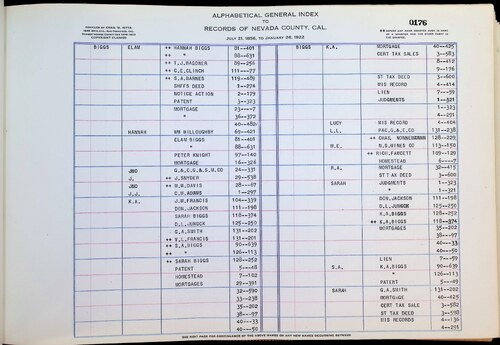 ALPHABETICAL GENERAL INDEX
TO
RECORDS OF NEVADA COUNTY, CAL.
0176
BIGGS ELAM ++ HANNAH BIGGS 81--401
" 86--631
++ I.J.WAGONER 89--256
++ G.E.CLINCH 111---77
++ S.A.BARNES 119--489
SHFFS DEED 1--274
NOTICE ACTION 2--179
PATENT 3--323
MORTGAGE 23----7
" 36--372
40--482
HANNAH WM WILLOUGHBY 69--421
ELAM BIGGS 81--401
" 88--631
PETER KNIGHT 97--140
MORTGAGE 16--326
JNO G.A.C.G.& S.M.CO 24--331
J. ++ J.SNYDER 29--538
JNO ++ H.M.DAVIS 28---67
J.J. C.M.ADAMS 1--297
K.A. J.M.FRANCIS 104--339
DON.JACKSON 111--198
SARAH BIGGS 118--374
D.L.JUNGCK 125--250
G.A.SMITH 131--202
++ V.L.FRANCIS 131--201
++ S.A.BIGGS 90--639
++ " 126--113
++ SARAH BIGGS 128--252
PATENT 5---48
HOMESTEAD 7--102
MORTGAGES 29--391
32--590
33--238
35--202
38---97
40---33
40---50
BIGGS K.A. MORTGAGE 40--425
CERT TAX SALE 3--583
8--412
9--176
ST TAX DEED 3--600
MIS RECORD 4--414
LIEN 7---59
JUDGMENTS 1--321
1--323
4--291
LUCY MIS RECORD 4--404
L.L. PAC.G.& E.CO 131--238
++ CHAS. 128--229
M.E. N.S.MINES CO 113--150
++ RICH.FAWCETT 109--129
HOMESTEAD 6----7
R.A. MORTGAGE 32--415
ST TAX DEED 3--600
SARAH JUDGMENTS 1--323
" 1--321
DON.JACKSON 111--198
D.L.JUNGCK 125--250
++ K.A.BIGGS 128--252
++ K.A.BIGGS 118--374
MORTGAGES 35--202
38---97
40---33
40---50
LIEN 7---59
S.A. K.A.BIGGS 90--639
" 126--113
PATENT 5---49
SARAH G.A.SMITH 131--202
MORTGAGE 40--425
CERT TAX SALE 3--582
ST TAX DEED 3--598
MIS RECORDS 4--136
4--291